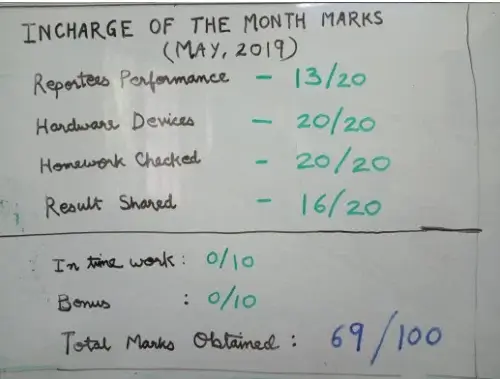 INCHARGE OF THE MONTH MARKS
(MAY, 2019)
Reportees Performance - 13/20
Hardware Devices - 20/20
Homework Checked - 20/20
Result Shared - 16/20
In time work: 0/10
Bonus : 0/10
Total Marks Obtained: 69/100